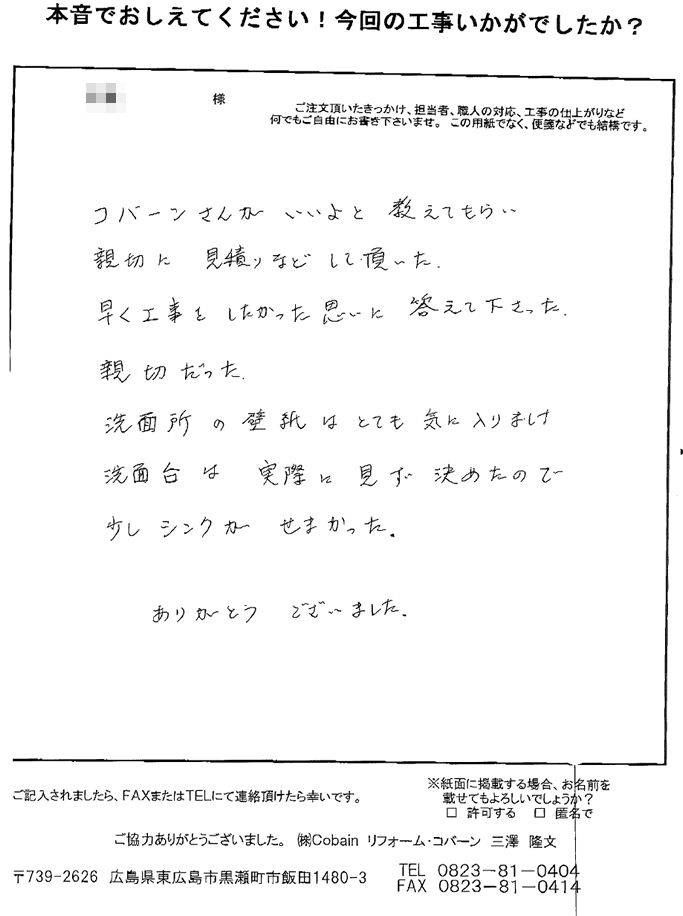 本音でおしえてください！今回の工事いかがでしたか？
様
ご注文頂いたきっかけ、担当者、職人の対応、工事の仕上がりなど
何でもご自由にお書き下さいませ。この用紙でなく、便箋などでも結構です。
コバーンさんがいいよと教えてもらい
親切に見積りなどして頂いた.
早く工事をしたかった思いに答えて下さった.
親切だった.
洗面所の壁紙はとても気に入りまし
洗面台は実際に見ず決めたので
少しシンクがせまかった.
ありがとうございました.
ご記入されましたら、FAXまたはTELにて連絡頂けたら幸いです。
※紙面に掲載する場合、お名前を
載せてもよろしいでしょうか？
□ 許可する □ 匿名で
ご協力ありがとうございました。 ㈱Cobain リフォーム・コバーン 三澤 隆文
〒739-2626 広島県東広島市黒瀬町市飯田1480-3
TEL 0823-81-0404
FAX 0823-81-0414